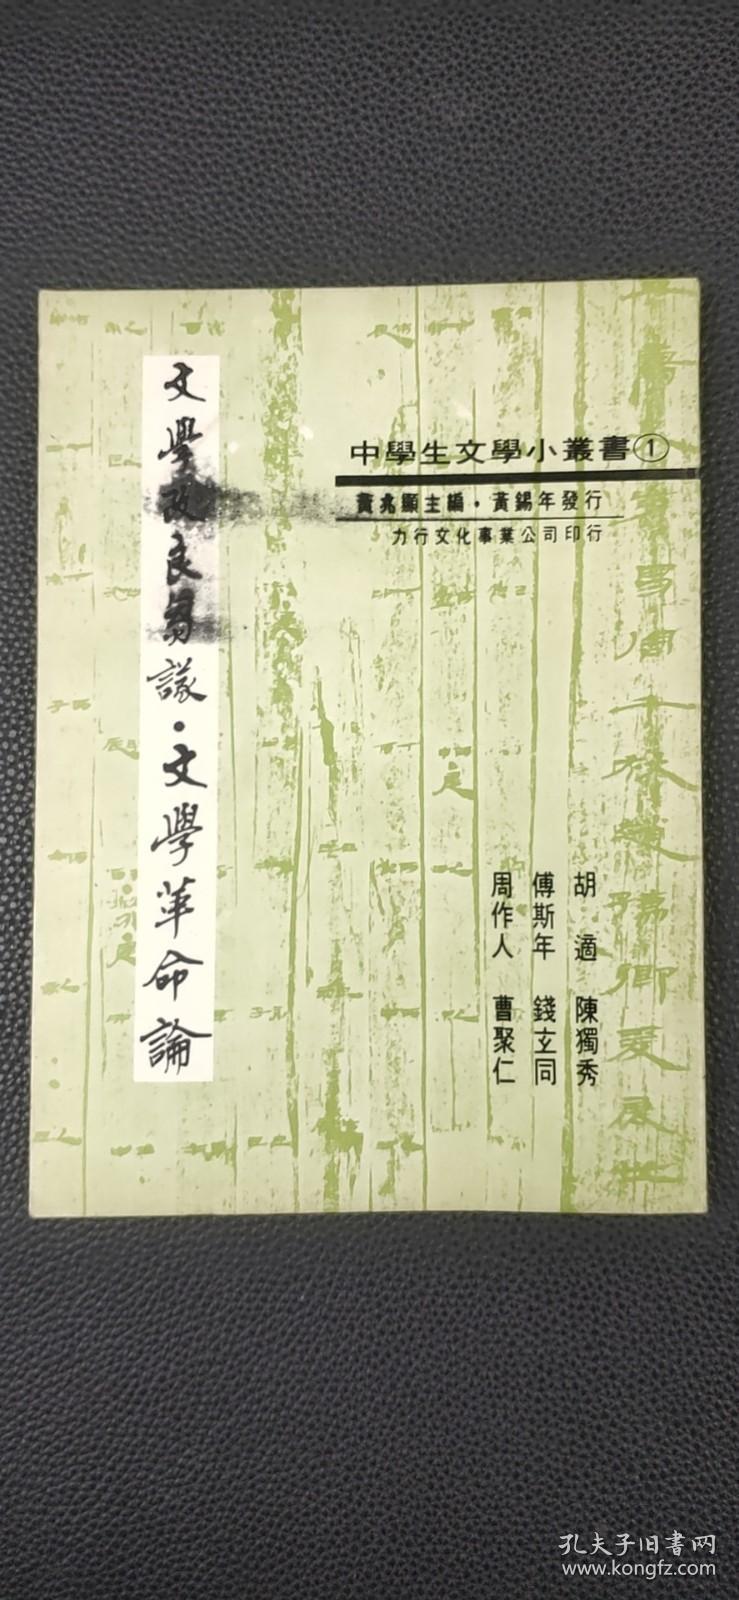 中學生文學小叢書①
黃兆顯主編·黃錫年發行
力行文化事業公司印行
文學改良芻議·文學革命論
胡適 陳獨秀
傅斯年 錢玄同
周作人 曹聚仁
孔夫子旧书网
www.kongfz.com